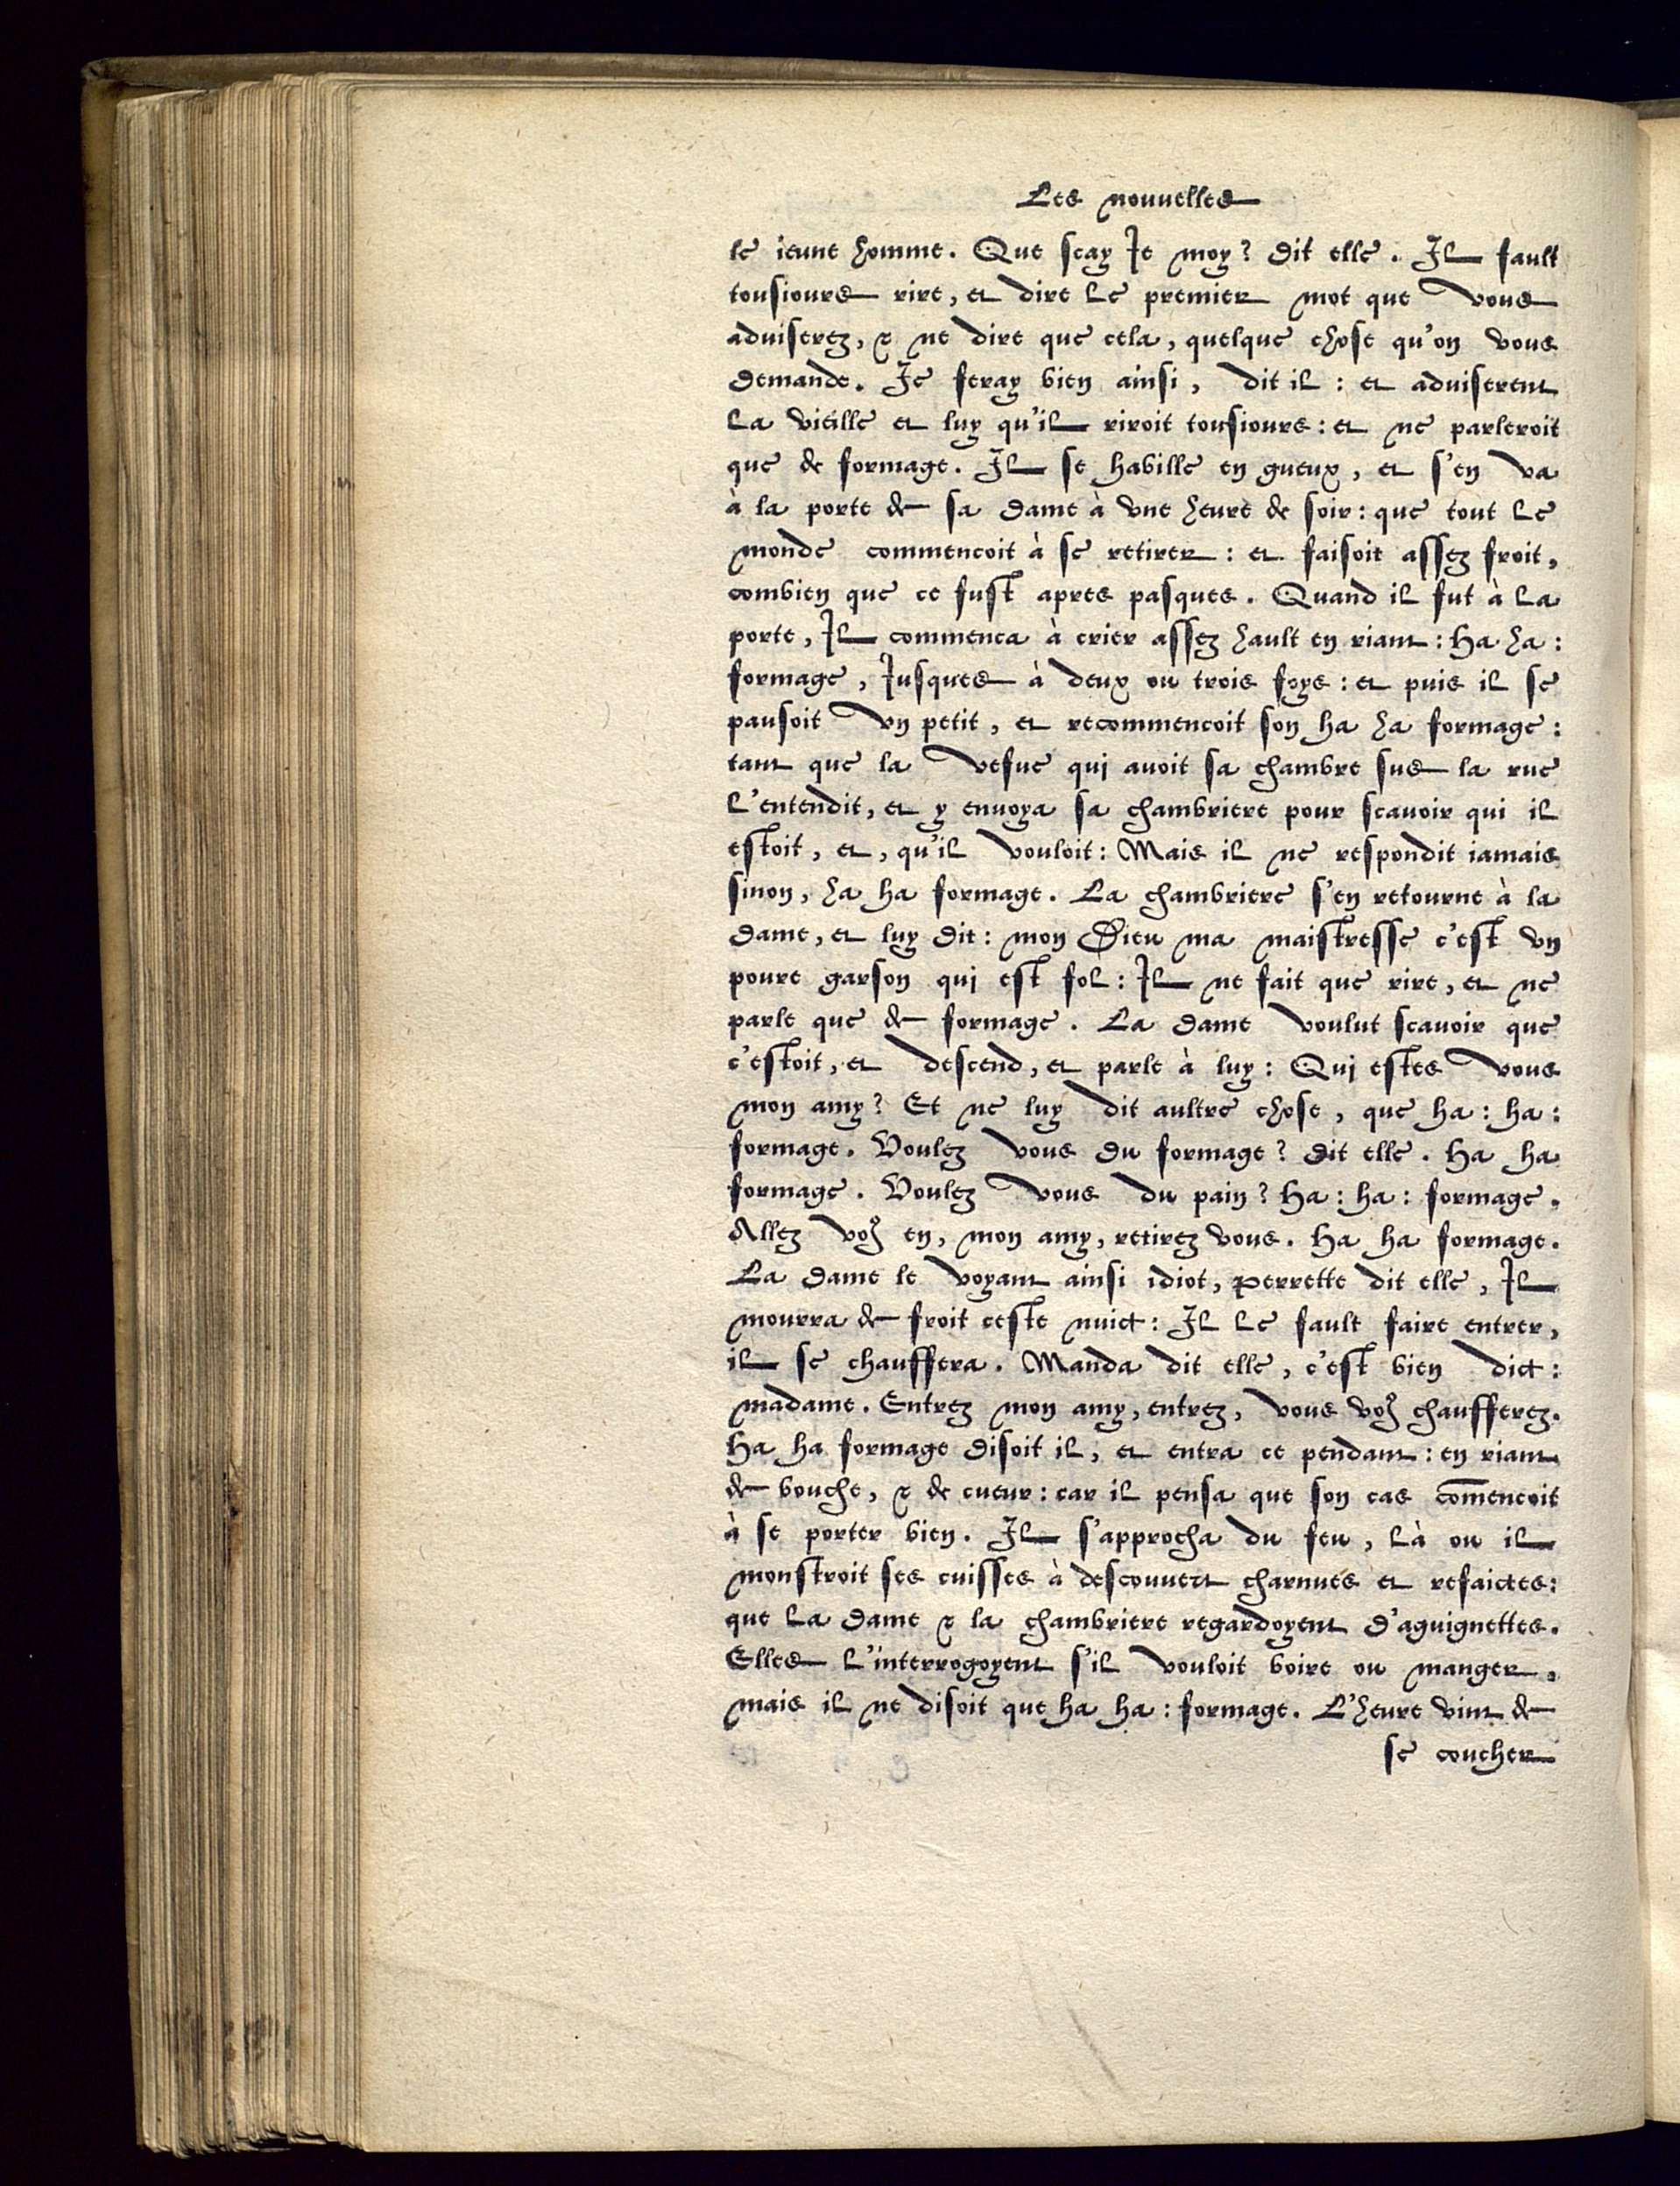 Les nouuelles
le ieune homme. Que scay Ie moy? dit elle. Il fault
tousiours rire, et dire le premier mot que vous
aduiserez, & ne dire que cela, quelque chose qu'on vous
demande. Ie feray bien ainsi, dit il: et aduiserent
la vieille et luy qu'il riroit tousiours: et ne parleroit
que de formage. Il se habille en gueux, et s'en va
à la porte de sa dame à vne heure de soir: que tout le
monde commencoit à se retirer: et faisoit assez froit,
combien que ce fust apres pasques. Quand il fut à la
porte, Il commenca à crier assez hault en riant: Ha ha:
formage, Iusques à deux ou trois foys: et puis il se
pausoit vn petit, et recommencoit son ha ha formage:
tant que la vefue qui auoit sa chambre sus la rue
l'entendit, et y enuoya sa chambriere pour scauoir qui il
estoit, et, qu'il vouloit: Mais il ne respondit iamais
sinon, ha ha formage. La chambriere s'en retourne à la
dame, et luy dit: mon Dieu ma maistresse c'est vn
poure garson qui est fol: Il ne fait que rire, et ne
parle que de formage. La dame voulut scauoir que
c'estoit, et descend, et parle à luy: Qui estes vous
mon amy? Et ne luy dit aultre chose, que ha: ha:
formage. Voulez vous du formage? dit elle. Ha ha
formage. Voulez vous du pain? Ha: ha: formage.
Allez voꝰ en, mon amy, retirez vous. Ha ha formage.
La dame le voyant ainsi idiot, Perrette dit elle, Il
mourra de froit ceste nuict: Il le fault faire entrer,
il se chauffera. Manda dit elle, c'est bien dict:
madame. Entrez mon amy, entrez, vous voꝰ chaufferez.
Ha ha formage disoit il, et entra ce pendant: en riant
de bouche, & de cueur: car il pensa que son cas com̄encoit
à se porter bien. Il s'approcha du feu, là ou il
monstroit ses cuisses à descouuert charnues et refaictes:
que la dame & la chambriere regardoyent d'aguignettes.
Elles l'interrogoyent s'il vouloit boire ou manger.
mais il ne disoit que ha ha: formage. L'heure vint de
se coucher